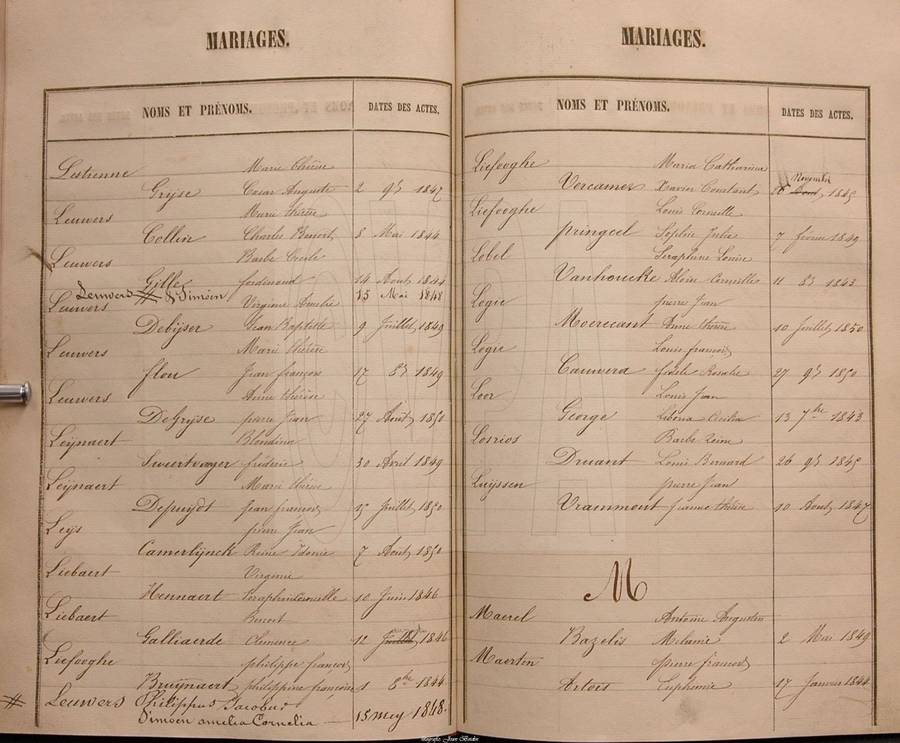 MARIAGES.
NOMS ET PRÉNOMS. DATES DES ACTES.
Lestienne Marie Thérèse
Gryse Cesar Auguste 2 9bre 1847
Leuwers Marie thérèse
Collin Charles Benoit 8 Mai 1844
Leuwers Barbe Cécile
Gille ferdinand 14 Aout 1844
Leuwers # & Simoën 15 Mai 1848
Leuwers Virginie Amelie
Debijser Jean Baptiste 9 Juillet 1849
Leuwers Marie thérèse
flou Jean françois 17 8bre 1849
Leuwers Anne thérèse
DeGryse pierre Jean 27 Aout 1850
Leijnaert Blondina
Sweertvager fréderic 30 Avril 1849
Leijnaert Marie thérèse
Depuydt Jean francois 15 Juillet 1850
Leijs pierre Jean
Camerlijnck Reine Idonie 7 Aout 1850
Liebaert Virginie
Hennaert Seraphin Corneille 10 Juin 1846
Liebaert Benoit
Galliaerde Clemence 12 Juillet 1846
Liefooghe philippe francois
Bruijnaert philippine françoise 1 8bre 1844
# Leuwers Philippus Jacobus
Simoën amelia Cornelia 15 mey 1848.
MARIAGES.
NOMS ET PRÉNOMS. DATES DES ACTES.
Liefooghe Maria Catharina
Novembre
Vercamer Xavier Constant 26 Aout 1845
Liefooghe Louis Corneille
pringcel Sophie Julie 7 fevrier 1849
Lobel Seraphine Louise
Vanhoucke Aloise Corneille 11 8bre 1843
Logie pierre Jean
Moerecant Anne thérèse 10 Juillet 1850
Logie Louis francois
Cauwera Rosalie 27 9bre 1850
Loor Louis Jean
George Liboria Cecilia 13 7bre 1843
Losrios Barbe
Druant Louis Bernard 26 9bre 1845
Luyssen pierre Jean
Vrammont Jeanne thérèse 10 Aout 1847
M
Maerel Antoine Augustin
Bazelis Melanie 2 Mai 1849
Maerten pierre francois
Artois Euphemie 17 Janvier 1844